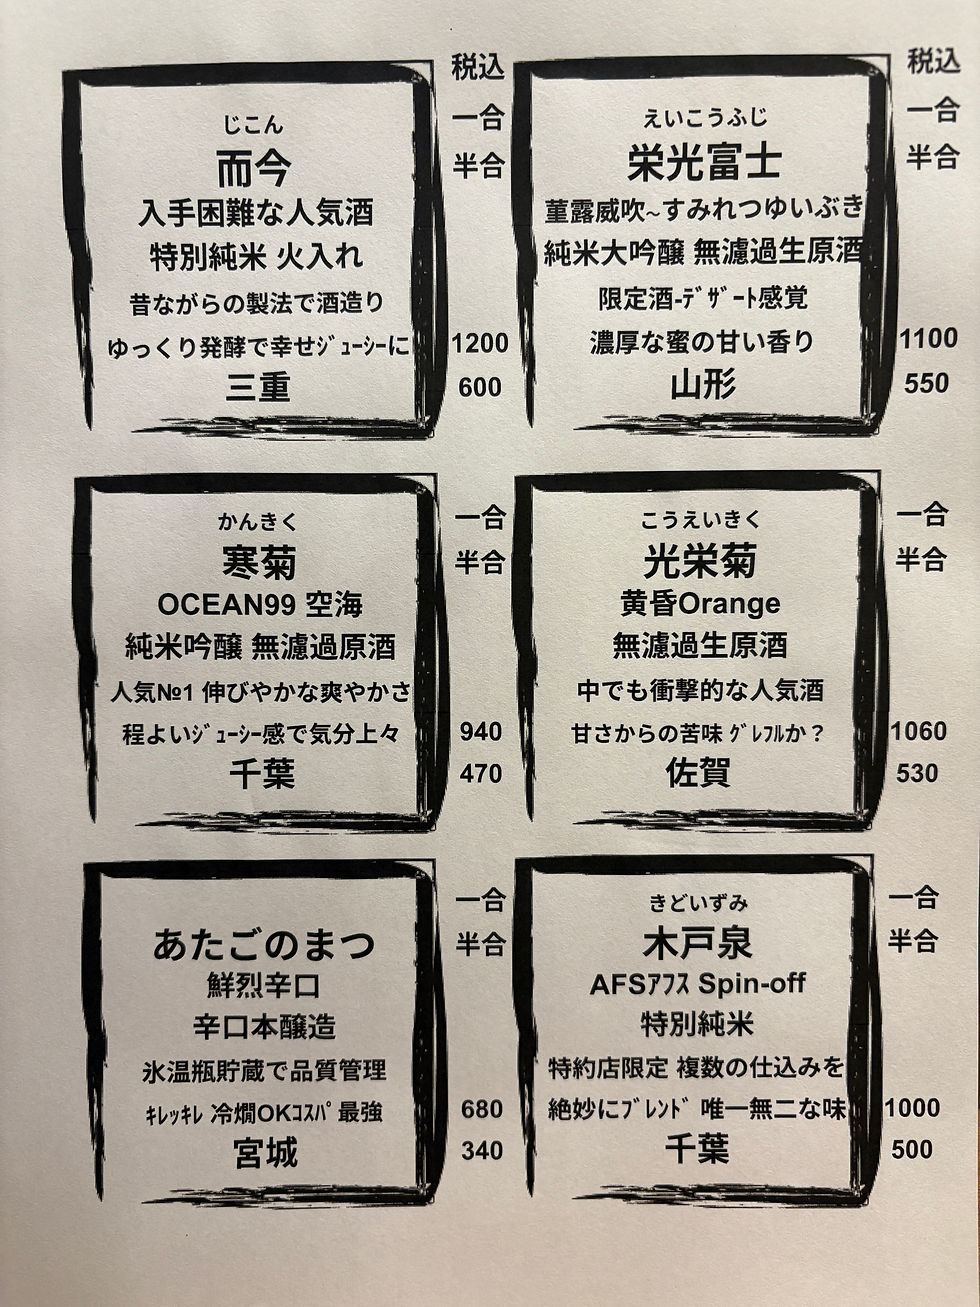 税込
一合
半合
じこん
而今
入手困難な人気酒
特別純米 火入れ
昔ながらの製法で酒造り
ゆっくり発酵で幸せｼﾞｭｰｼｰに
1200
三重
600
税込
一合
半合
えいこうふじ
栄光富士
菫露威吹~すみれつゆいぶき
純米大吟醸 無濾過生原酒
限定酒-ﾃﾞｻﾞｰﾄ感覚
濃厚な蜜の甘い香り
1100
山形
550
一合
半合
かんきく
寒菊
OCEAN99 空海
純米吟醸 無濾過原酒
人気№1 伸びやかな爽やかさ
程よいｼﾞｭｰｼｰ感で気分上々
940
千葉
470
一合
半合
こうえいきく
光栄菊
黄昏Orange
無濾過生原酒
中でも衝撃的な人気酒
甘さからの苦味 ｸﾞﾚﾌﾙか？
1060
佐賀
530
一合
半合
あたごのまつ
鮮烈辛口
辛口本醸造
氷温瓶貯蔵で品質管理
ｷﾚｯｷﾚ 冷燗OKｺｽﾊﾟ最強
680
宮城
340
一合
半合
きどいずみ
木戸泉
AFSｱﾌｽ Spin-off
特別純米
特約店限定 複数の仕込みを
絶妙にﾌﾞﾚﾝﾄﾞ 唯一無二な味
1000
千葉
500